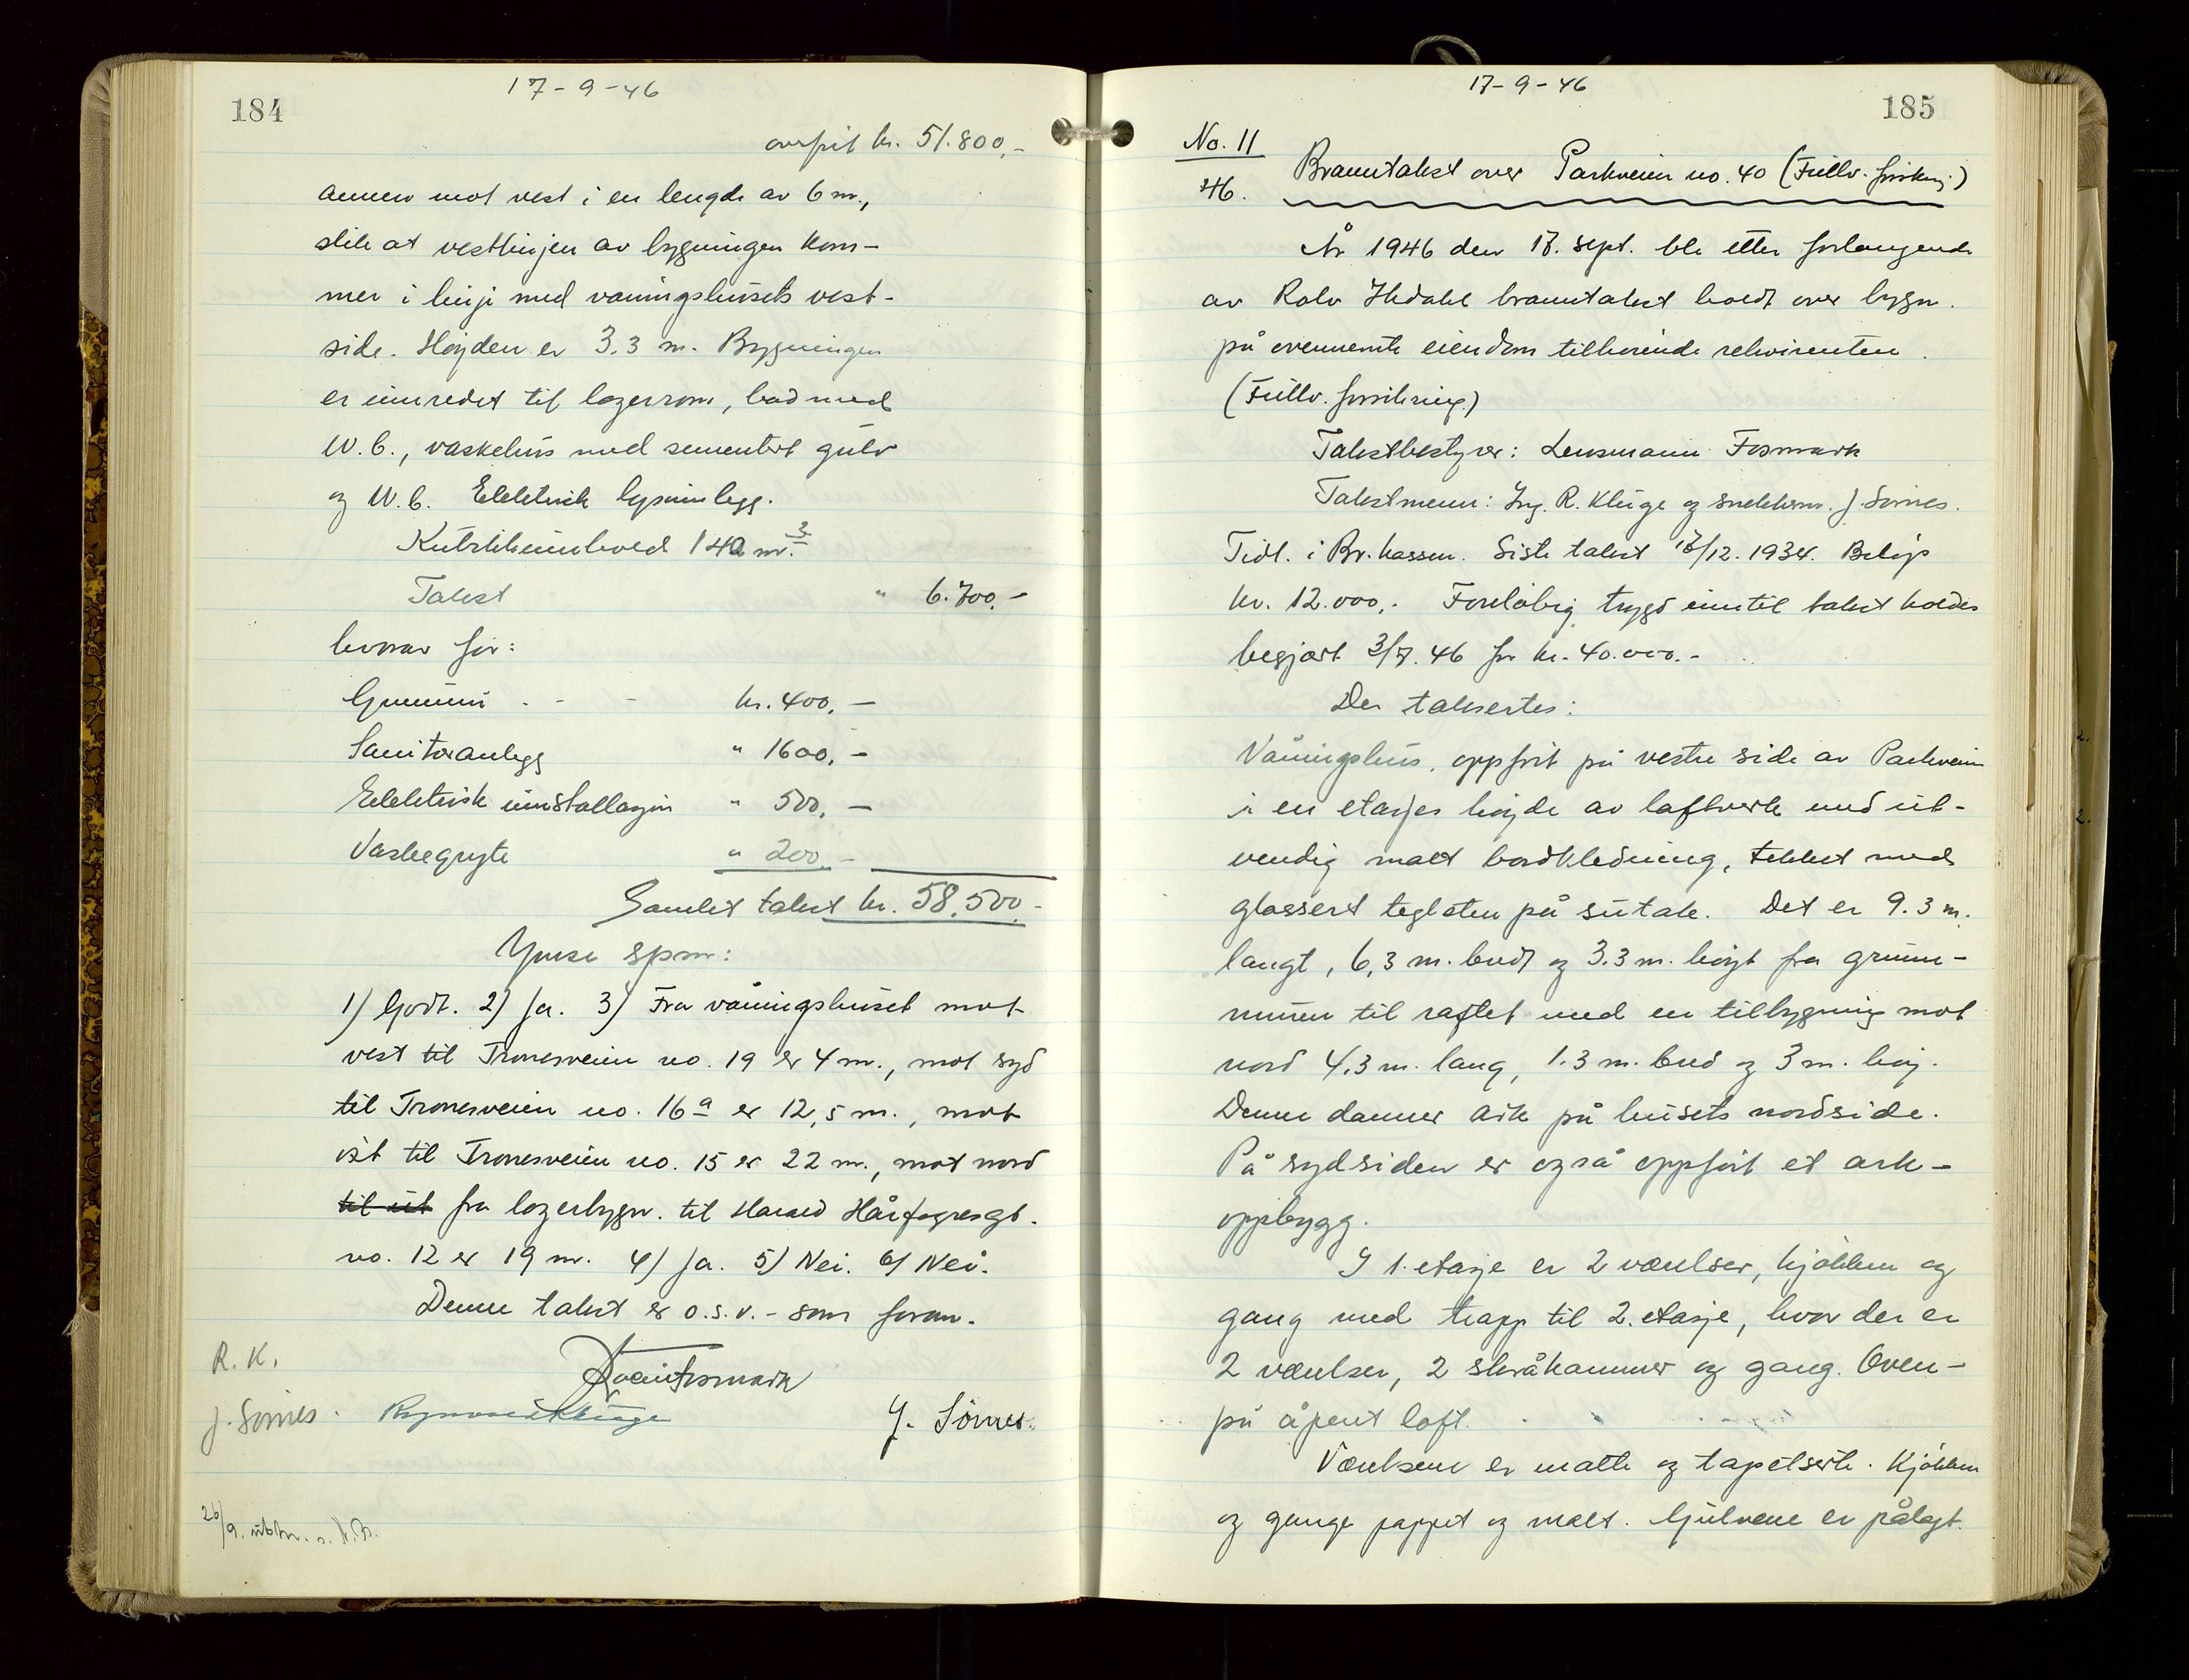 184
17-9-46
overført kr. 51.800,-
annen mot vest i en lengde av 6 m.,
slik at vestlinjen av bygningen kom-
mer i linje med våningshusets vest-
side. Høyden er 3.3 m. Bygningen
er innredet til lagerrom, bad med
W.C., vaskehus med sementert gulv
og W.C. Elektrisk lysinnlegg.
Kubikkinnhold 140 m.3
Takst " 6.700.-
hvorav for:
Grunnmur - - kr. 400,-
Sanitæranlegg " 1600,-
Elektrisk installasjon " 500,-
Vaskegryte " 200.-
Samlet takst kr. 58.500.-
Ymse spm:
1) Godt. 2) Ja. 3) Fra våningshuset mot
vest til Tronesveien no. 19 er 4 m., mot syd
til Tronesveien no. 16a er 12,5 m., mot
øst til Tronesveien no. 15 er 22 m., mot nord
til ut fra lagerbygn. til Harald Hårfagresgt.
no. 12 er 19 m. 4) Ja. 5) Nei. 6) Nei.
Denne takst er o.s.v. - som foran.
R. K.
Svein Fosmark
J. Sørnes. Raymond Kluge J. Sørnes.
26/9. utskr. s. N.B.
185
17-9-46
No. 11
46. Branntakst over Parkveien no. 40 (Fullv. forsikring)
År 1946 den 17. sept. ble etter forlangende
av Rolv Hedahl branntakst holdt over bygn.
på ovennevnte eiendom tilhørende rekvirenten.
(Fullv. forsikring)
Takstbestyrer: Lensmann Fosmark
Takstmenn: Ing. R. Kluge og snekkerm. J. Sørnes.
Tidl. i Br. kassen. Siste takst 18/12. 1934. Beløp
kr. 12.000,- Foreløbig trygd inntil takst holdes
begjært 3/7. 46 for kr. 40.000.-
Der taksertes:
Våningshus, oppført på vestre side av Parkveien
i en etasjes høyde av laftverk med ut-
vendig malt bordkledning, tekket med
glassert teglsten på sutak. Det er 9.3 m.
langt, 6,3 m. bredt og 3.3 m. høyt fra grunn-
muren til raftet med en tilbygning mot
nord 4,3 m. lang, 1.3 m. bred og 3 m. høy.
Denne danner ark på husets nordside.
På sydsiden er også oppført et ark-
oppbygg.
I 1. etasje er 2 værelser, kjøkken og
gang med trapp til 2. etasje, hvor der er
2 værelser, 2 skråkammer og gang. Oven-
på åpent loft.
Værelsene er malte og tapetserte. Kjøkken
og gange pappet og malt. Gulvene er pålagt